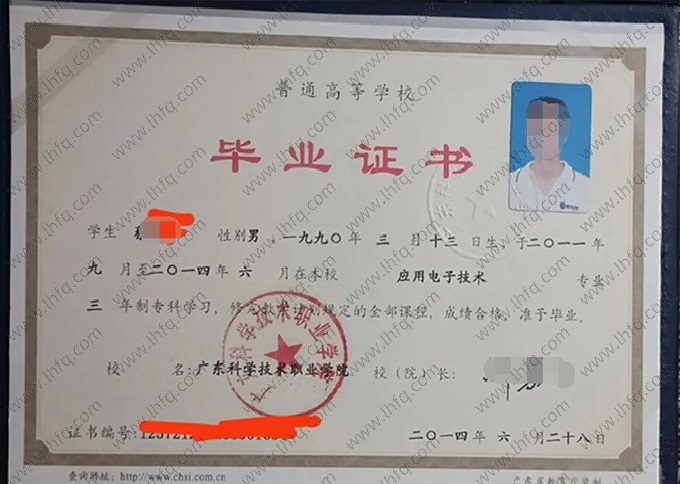 普通高等学校
毕业证书
学生 性别男,一九九〇年 三 月十三日生,于二〇一一年
九 月至二〇一四年 六 月在本校 应用电子技术 专业
三 年制专科学习,修完教学计划规定的全部课程,成绩合格,准予毕业。
校 名:广东科学技术职业学院 校(院)长:
证书编号: 二〇一四年 六 月二十八日
查询网址:http://www.chsi.com.cn 广东省教育厅监制
www.lhfq.com